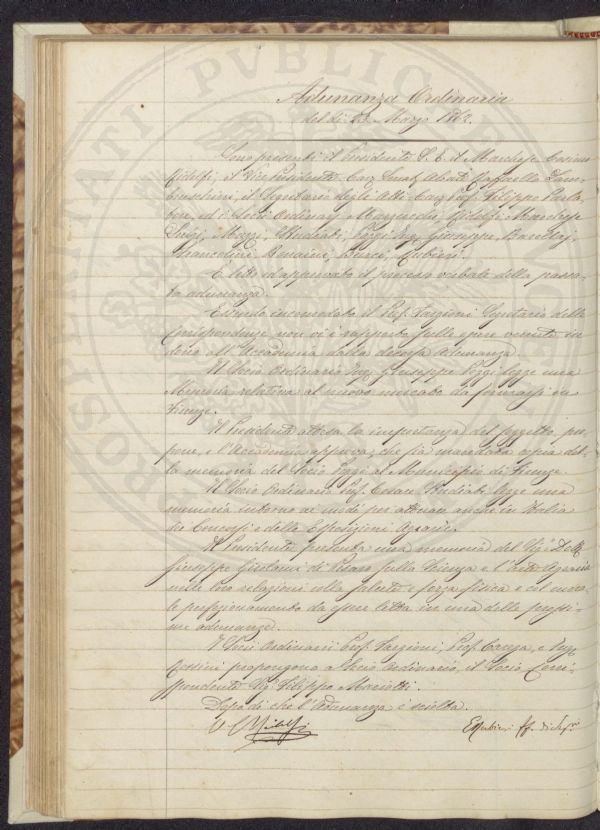 Adunanza Ordinaria
del dì 23. Marzo 1862.
Sono presenti: il Presidente S. E. il Marchese Cosimo
Ridolfi; il Vice Presidente Abate Raffaello Lam-
bruschini, il Segretario degli Atti Cav. Prof. Filippo Parla-
tore, ed i Socj Ordinarj Ridolfi Marchese
Luigi, Studiati, Poggi Ing. Giuseppe,
Rubieri.
È letto ed approvato il processo verbale della passa-
ta adunanza.
Essendo incomodato il Prof. Targioni Segretario delle
Corrispondenze, non vi è rapporto sulle opere venute in
dono all'Accademia dalla decorsa Adunanza.
Il Socio Ordinario Ing. Giuseppe Poggi legge una
Memoria relativa al nuovo mercato da formarsi in
Firenze.
Il Presidente attesa la importanza del soggetto, pro-
pone, e l'Accademia approva, che sia mandata copia del-
la memoria del Socio Poggi al Municipio di Firenze.
Il Socio Ordinario Prof. Cesare Studiati legge una
memoria intorno ai modi per attivar anche in Italia
dei Concorsi e delle Esposizioni Agrarie.
Il Presidente presenta una memoria del Sig. Dott.
Giuseppe di Pesaro sulla Scienza e l'arte Agraria
nelle loro relazioni colla salute e forza fisica e col mora-
le perfezionamento da essere letta in una delle prossi-
me adunanze.
I Socj Ordinarii Prof. Targioni, Prof. Caruga, e Ing.
Rossini propongono a Socio Ordinario, il Socio Corri-
spondente Sig. Filippo Mariotti.
Dopo di che l'Adunanza è sciolta.
C. Ridolfi
E. Rubieri ff. di Seg.